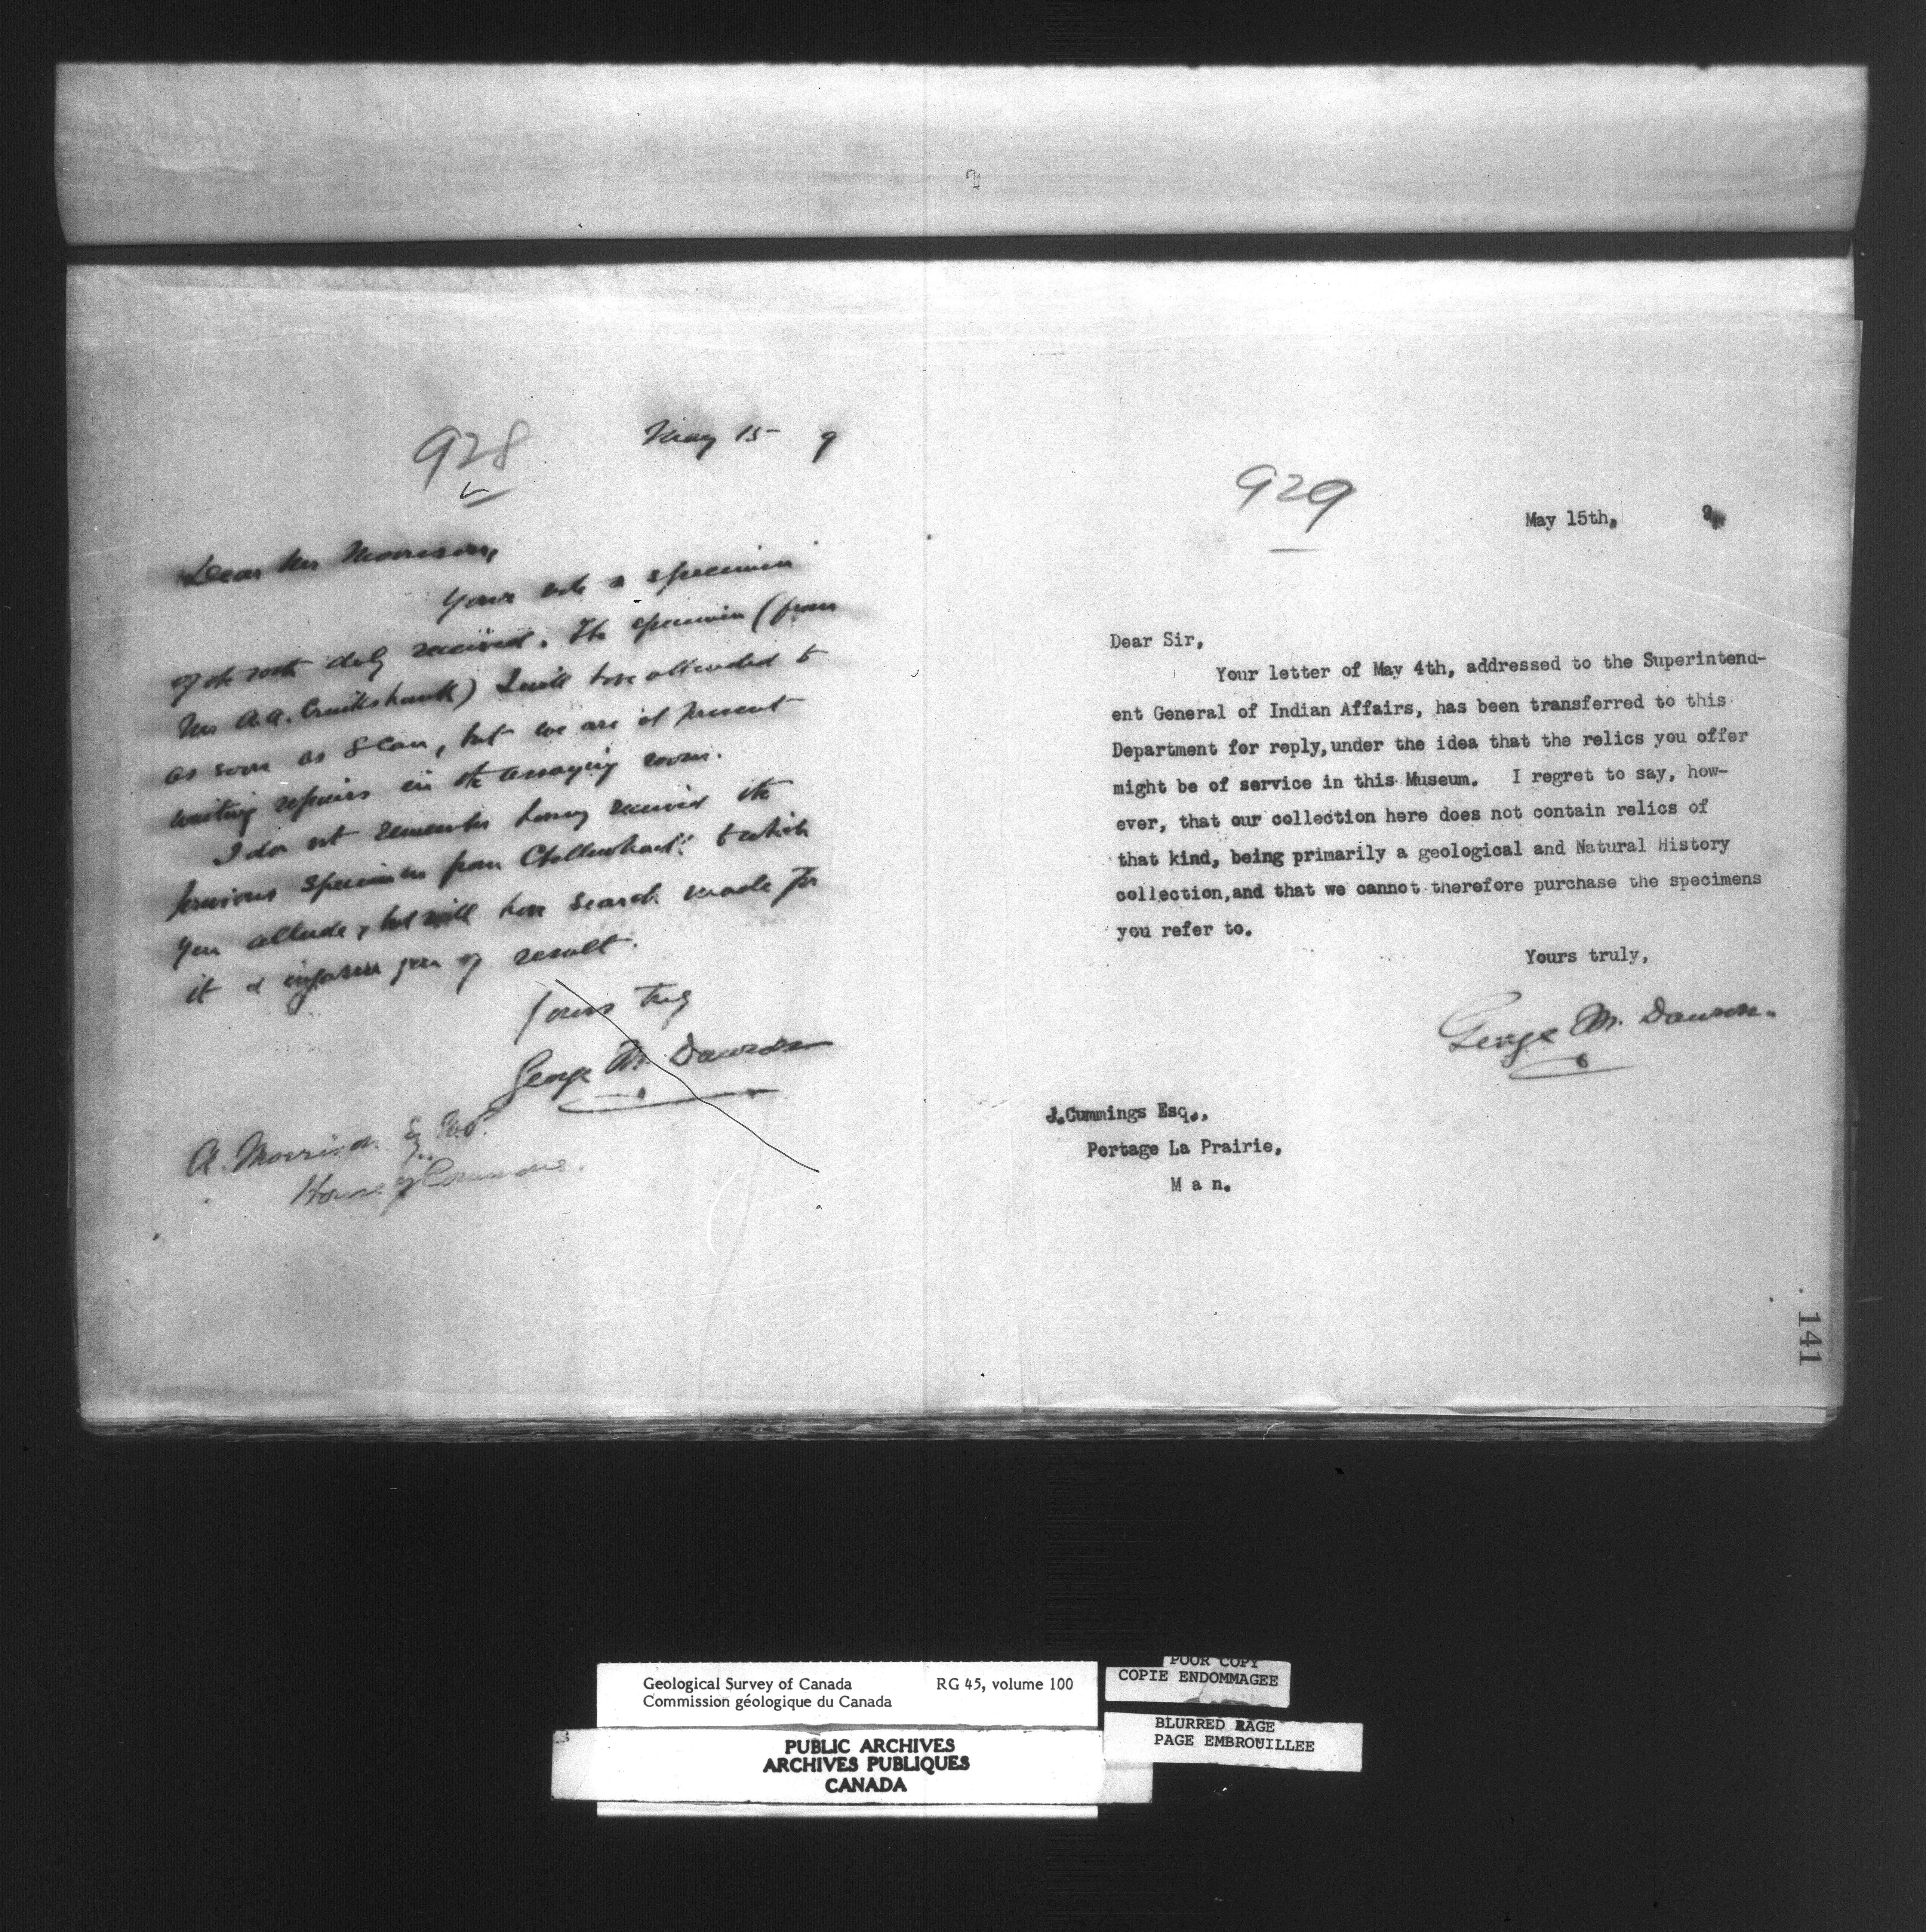 928
May 15 9
Dear Mr Morrison,
Your note & specimen
of the rock duly received. The specimen (from
Mr A.A. Cruikshank) I will have attended to
as soon as I can, but we are at present
waiting repairs in the assaying room.
I do not remember having received the
previous specimen from to which
you allude, but will have search made for
it & inform you of result.
Yours truly
George M. Dawson
A. Morrison Esq. M.P.
House of Commons.
929
May 15th, 9
Dear Sir,
Your letter of May 4th, addressed to the Superintend-
ent General of Indian Affairs, has been transferred to this
Department for reply, under the idea that the relics you offer
might be of service in this Museum. I regret to say, how-
ever, that our collection here does not contain relics of
that kind, being primarily a geological and Natural History
collection, and that we cannot therefore purchase the specimens
you refer to.
Yours truly,
George M. Dawson.
J. Cummings Esq.,
Portage La Prairie,
M a n.
141
Geological Survey of Canada RG 45, volume 100
Commission géologique du Canada
PUBLIC ARCHIVES
ARCHIVES PUBLIQUES
CANADA
POOR COPY
COPIE ENDOMMAGEE
BLURRED PAGE
PAGE EMBROUILLEE